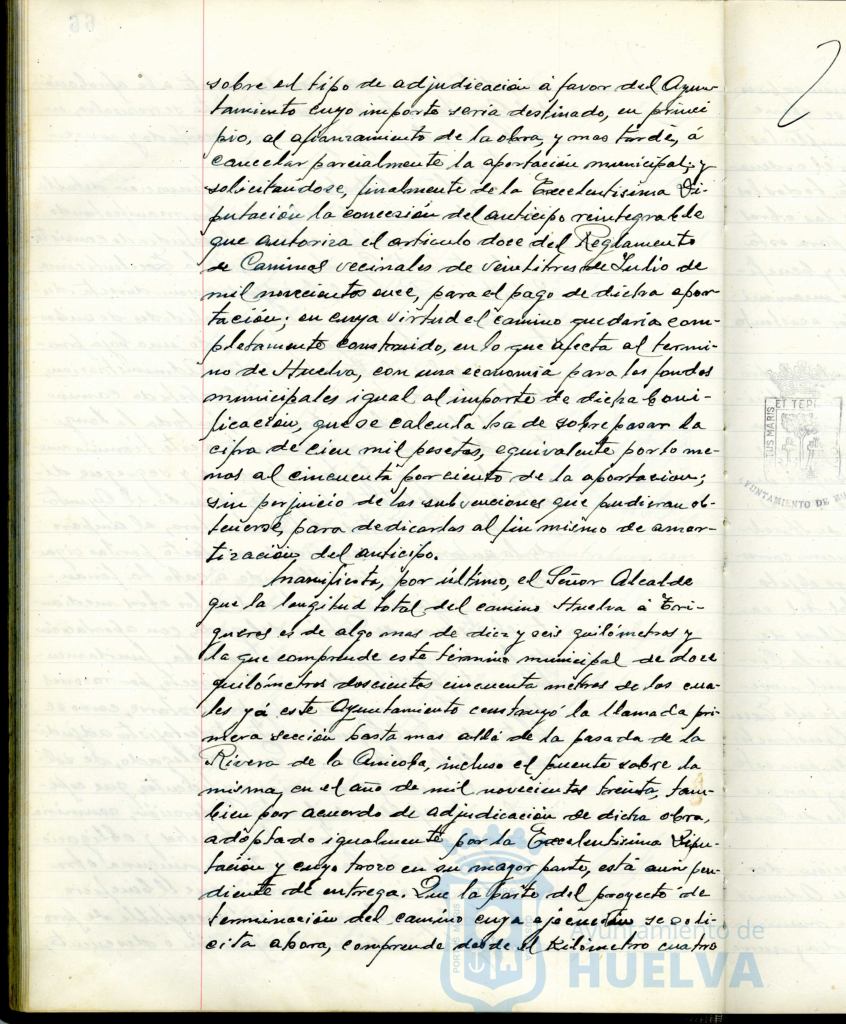 sobre el tipo de adjudicación á favor del Ayun-
tamiento cuyo importe seria destinado, en princi
pio, al afianzamiento de la obra, y mas tarde, á
cancelar parcialmente la aportación municipal; y
solicitandose, finalmente de la Excelentisima Di-
putación la concesión del anticipo reintegrable
que autoriza el articulo doce del Reglamento
de Caminos vecinales de veintitres de Julio de
mil novecientos once, para el pago de dicha apor-
tación; en cuya virtud el camino quedaria com-
pletamente construido, en lo que afecta al termi-
no de Huelva, con una economia para los fondos
municipales igual al importe de dicha boni-
ficación, que se calcula ha de sobrepasar la
cifra de cien mil pesetas, equivalente por lo me-
nos al cincuenta por ciento de la aportacion;
sin perjuicio de las subvenciones que pudieran ob-
tenerse, para dedicarlas al fin mismo de amor-
tización del anticipo.
Manifiesta, por último, el Señor Alcalde
que la longitud total del camino Huelva á Tri-
gueros es de algo mas de diez y seis quilómetros y
la que comprende este término municipal de doce
quilómetros doscientos cincuenta metros de los cua-
les yá este Ayuntamiento construyó la llamada pri-
mera sección hasta mas allá de la pasada de la
Rivera de la Anicoba, incluso el puente sobre la
misma, en el año de mil novecientos treinta, tam-
bien por acuerdo de adjudicación de dicha obra,
adoptado igualmente por la Excelentisima Dipu-
tación y cuyo trozo en su mayor parte, está aun pen-
diente de entrega. Que la parte del proyecto de
terminación del camino cuya ejecución se soli-
cita ahora, comprende desde el Kilómetro cuatro
ET TERR
AYUNTAMIENTO DE
Ayuntamiento de
HUELVA